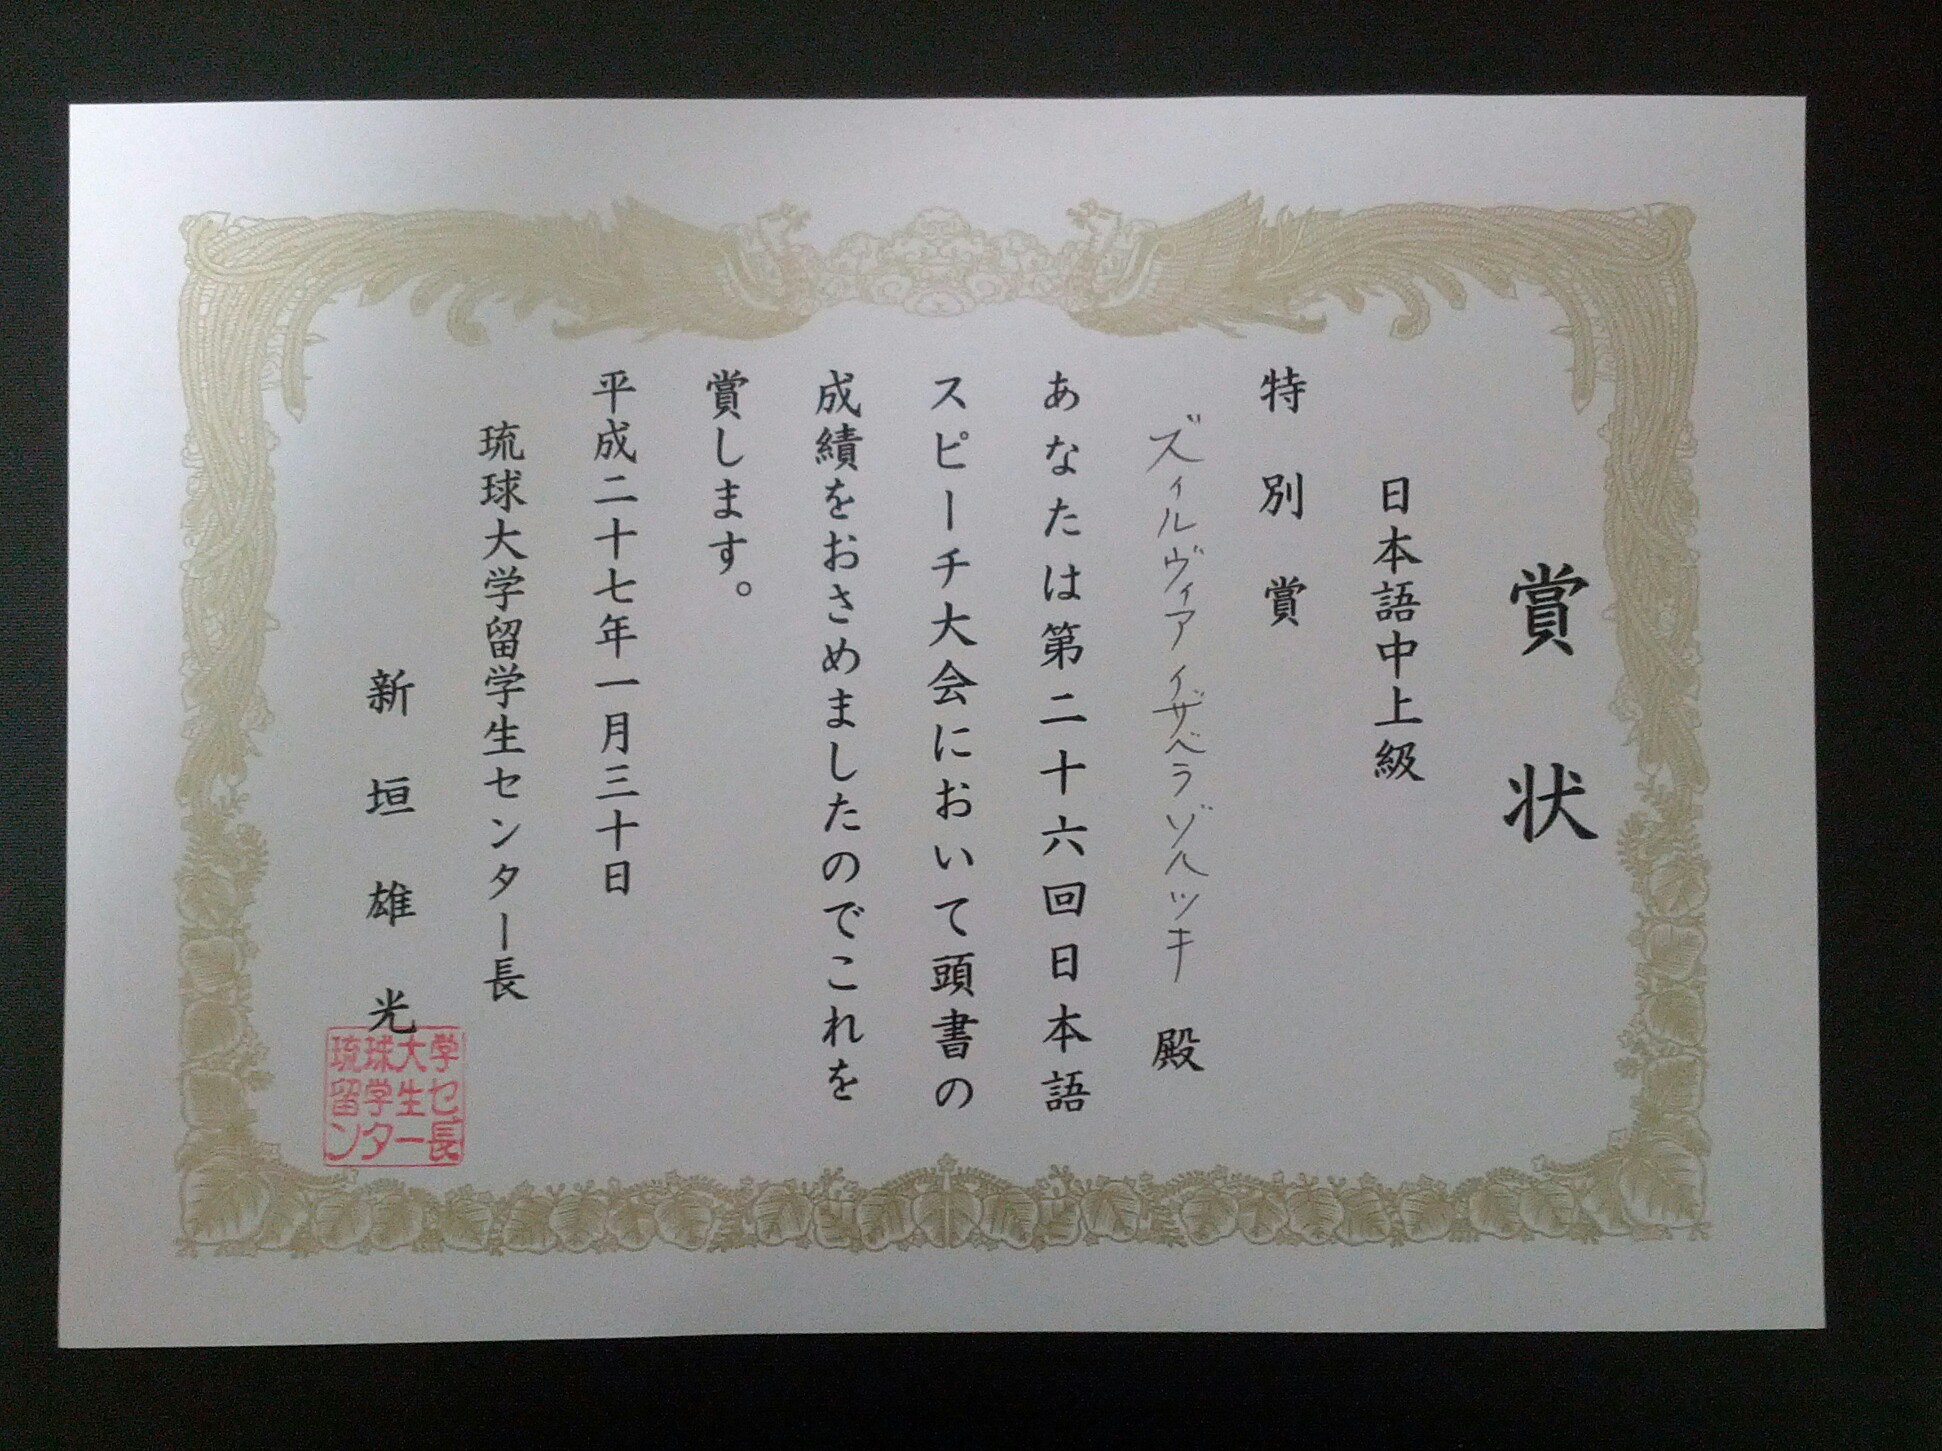 賞状
日本語中上級
特別賞
ズィルヴィア イザベラ ゾヘツキ 殿
あなたは第二十六回日本語
スピーチ大会において頭書の
成績をおさめましたのでこれを
賞します。
平成二十七年一月三十日
琉球大学留学生センター長
新垣雄光
琉球大学
留学生セ
ンター長